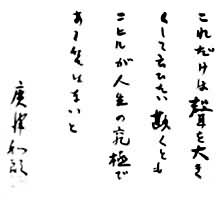 これだけは聲を大き
くして云ひたい 尠くとも
ニヒルが人生の究極で
ある筈はないと
廣津和郎